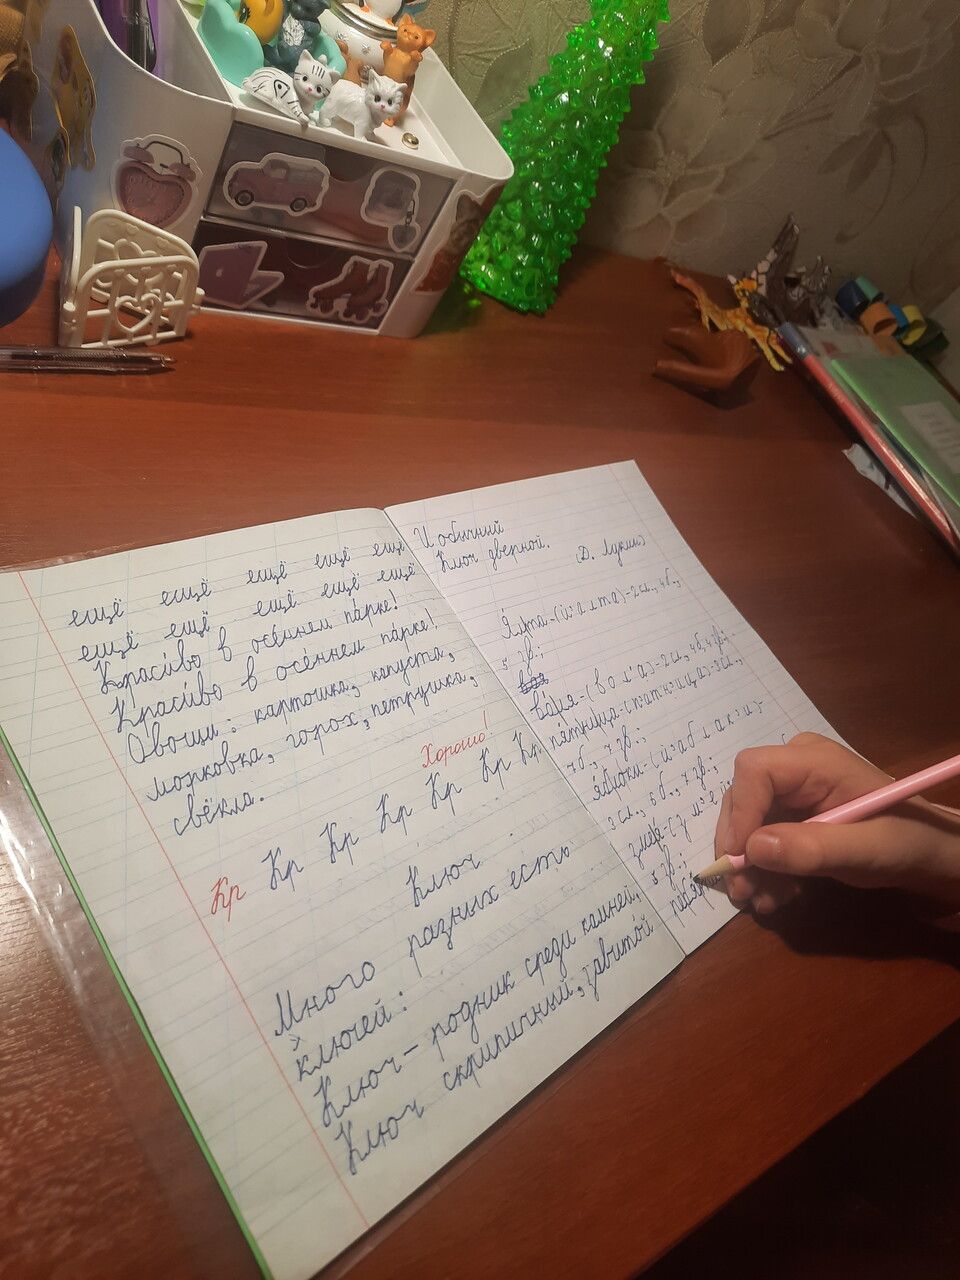 ещё ещё ещё ещё ещё
ещё ещё ещё ещё ещё
Краси́во в осе́ннем па́рке!
Краси́во в осе́ннем па́рке!
Овощи: картошка, капуста,
морковка, горох, петрушка,
свёкла.
Хорошо!
Кр Кр Кр Кр Кр Кр Кр
Ключ
Много разных есть
ключей:
Ключ – родник среди камней,
Ключ скрипичный, завито́й
И обычный
Ключ дверной.
(Д. Лукич)
Я́лта-[й'алта]-2сл., 4б.,
5 зв.;
Ва́ря-
пя́тница-
7б., 7 зв.;
я́блоки-[й'аблак'и]-
3 сл., 6 б., 7 зв.;
змея́-
5 зв.;